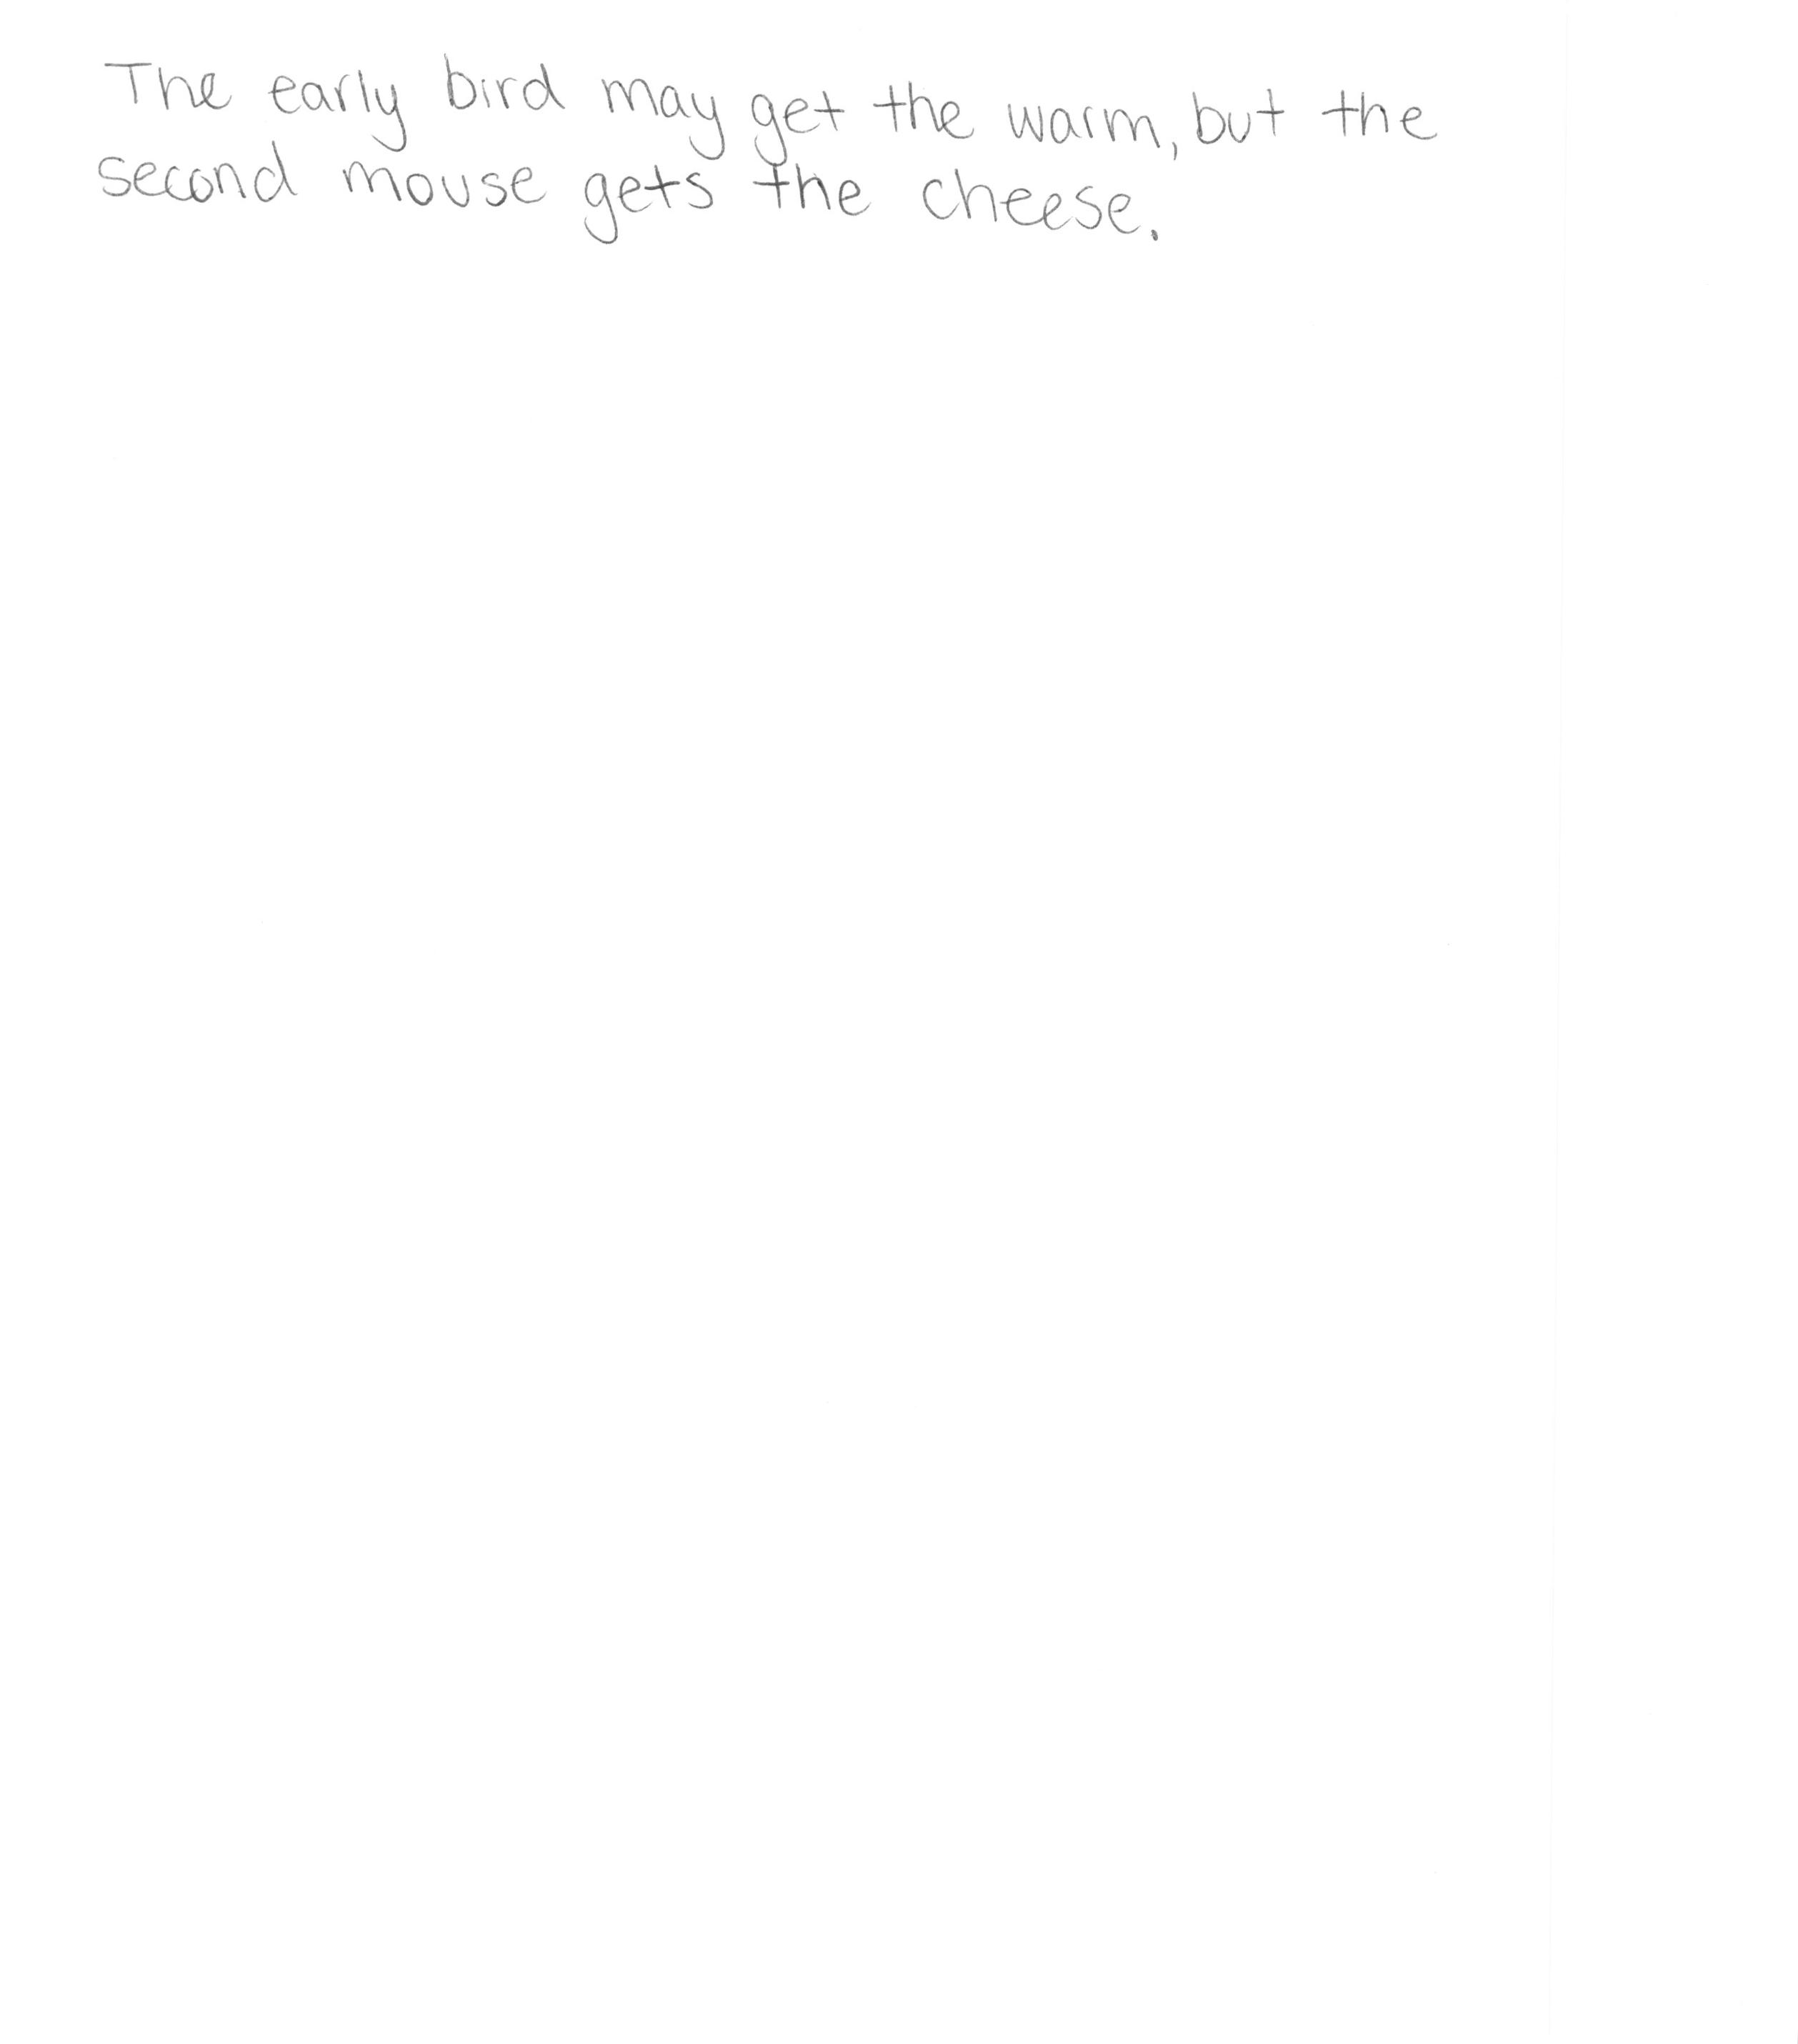 The early bird may get the warm, but the
second mouse gets the cheese.